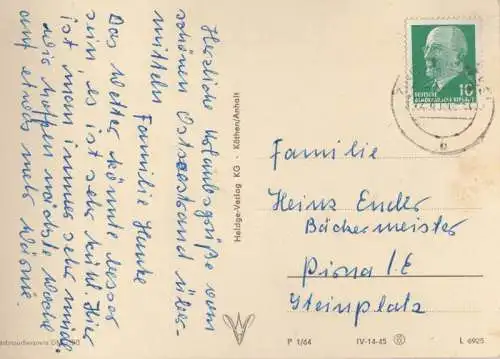 Herzliche Urlaubsgrüße vom
schönen Ostseestrand über-
mitteln
Familie Hunke
Das Wetter könnte besser
sein es ist sehr kühl. Hier
ist man immer sehr müde.
Wir hoffen nächste Woche
auf etwas mehr Wärme.
Heldge-Verlag KG - Köthen/Anhalt
DEUTSCHE
DEMOKRATISCHE REPUBLIK
10
Familie
Heinz Ender
Bäckermeister
Pirna /. E
Steinplatz
P 1/64
IV-14-45
L 6925